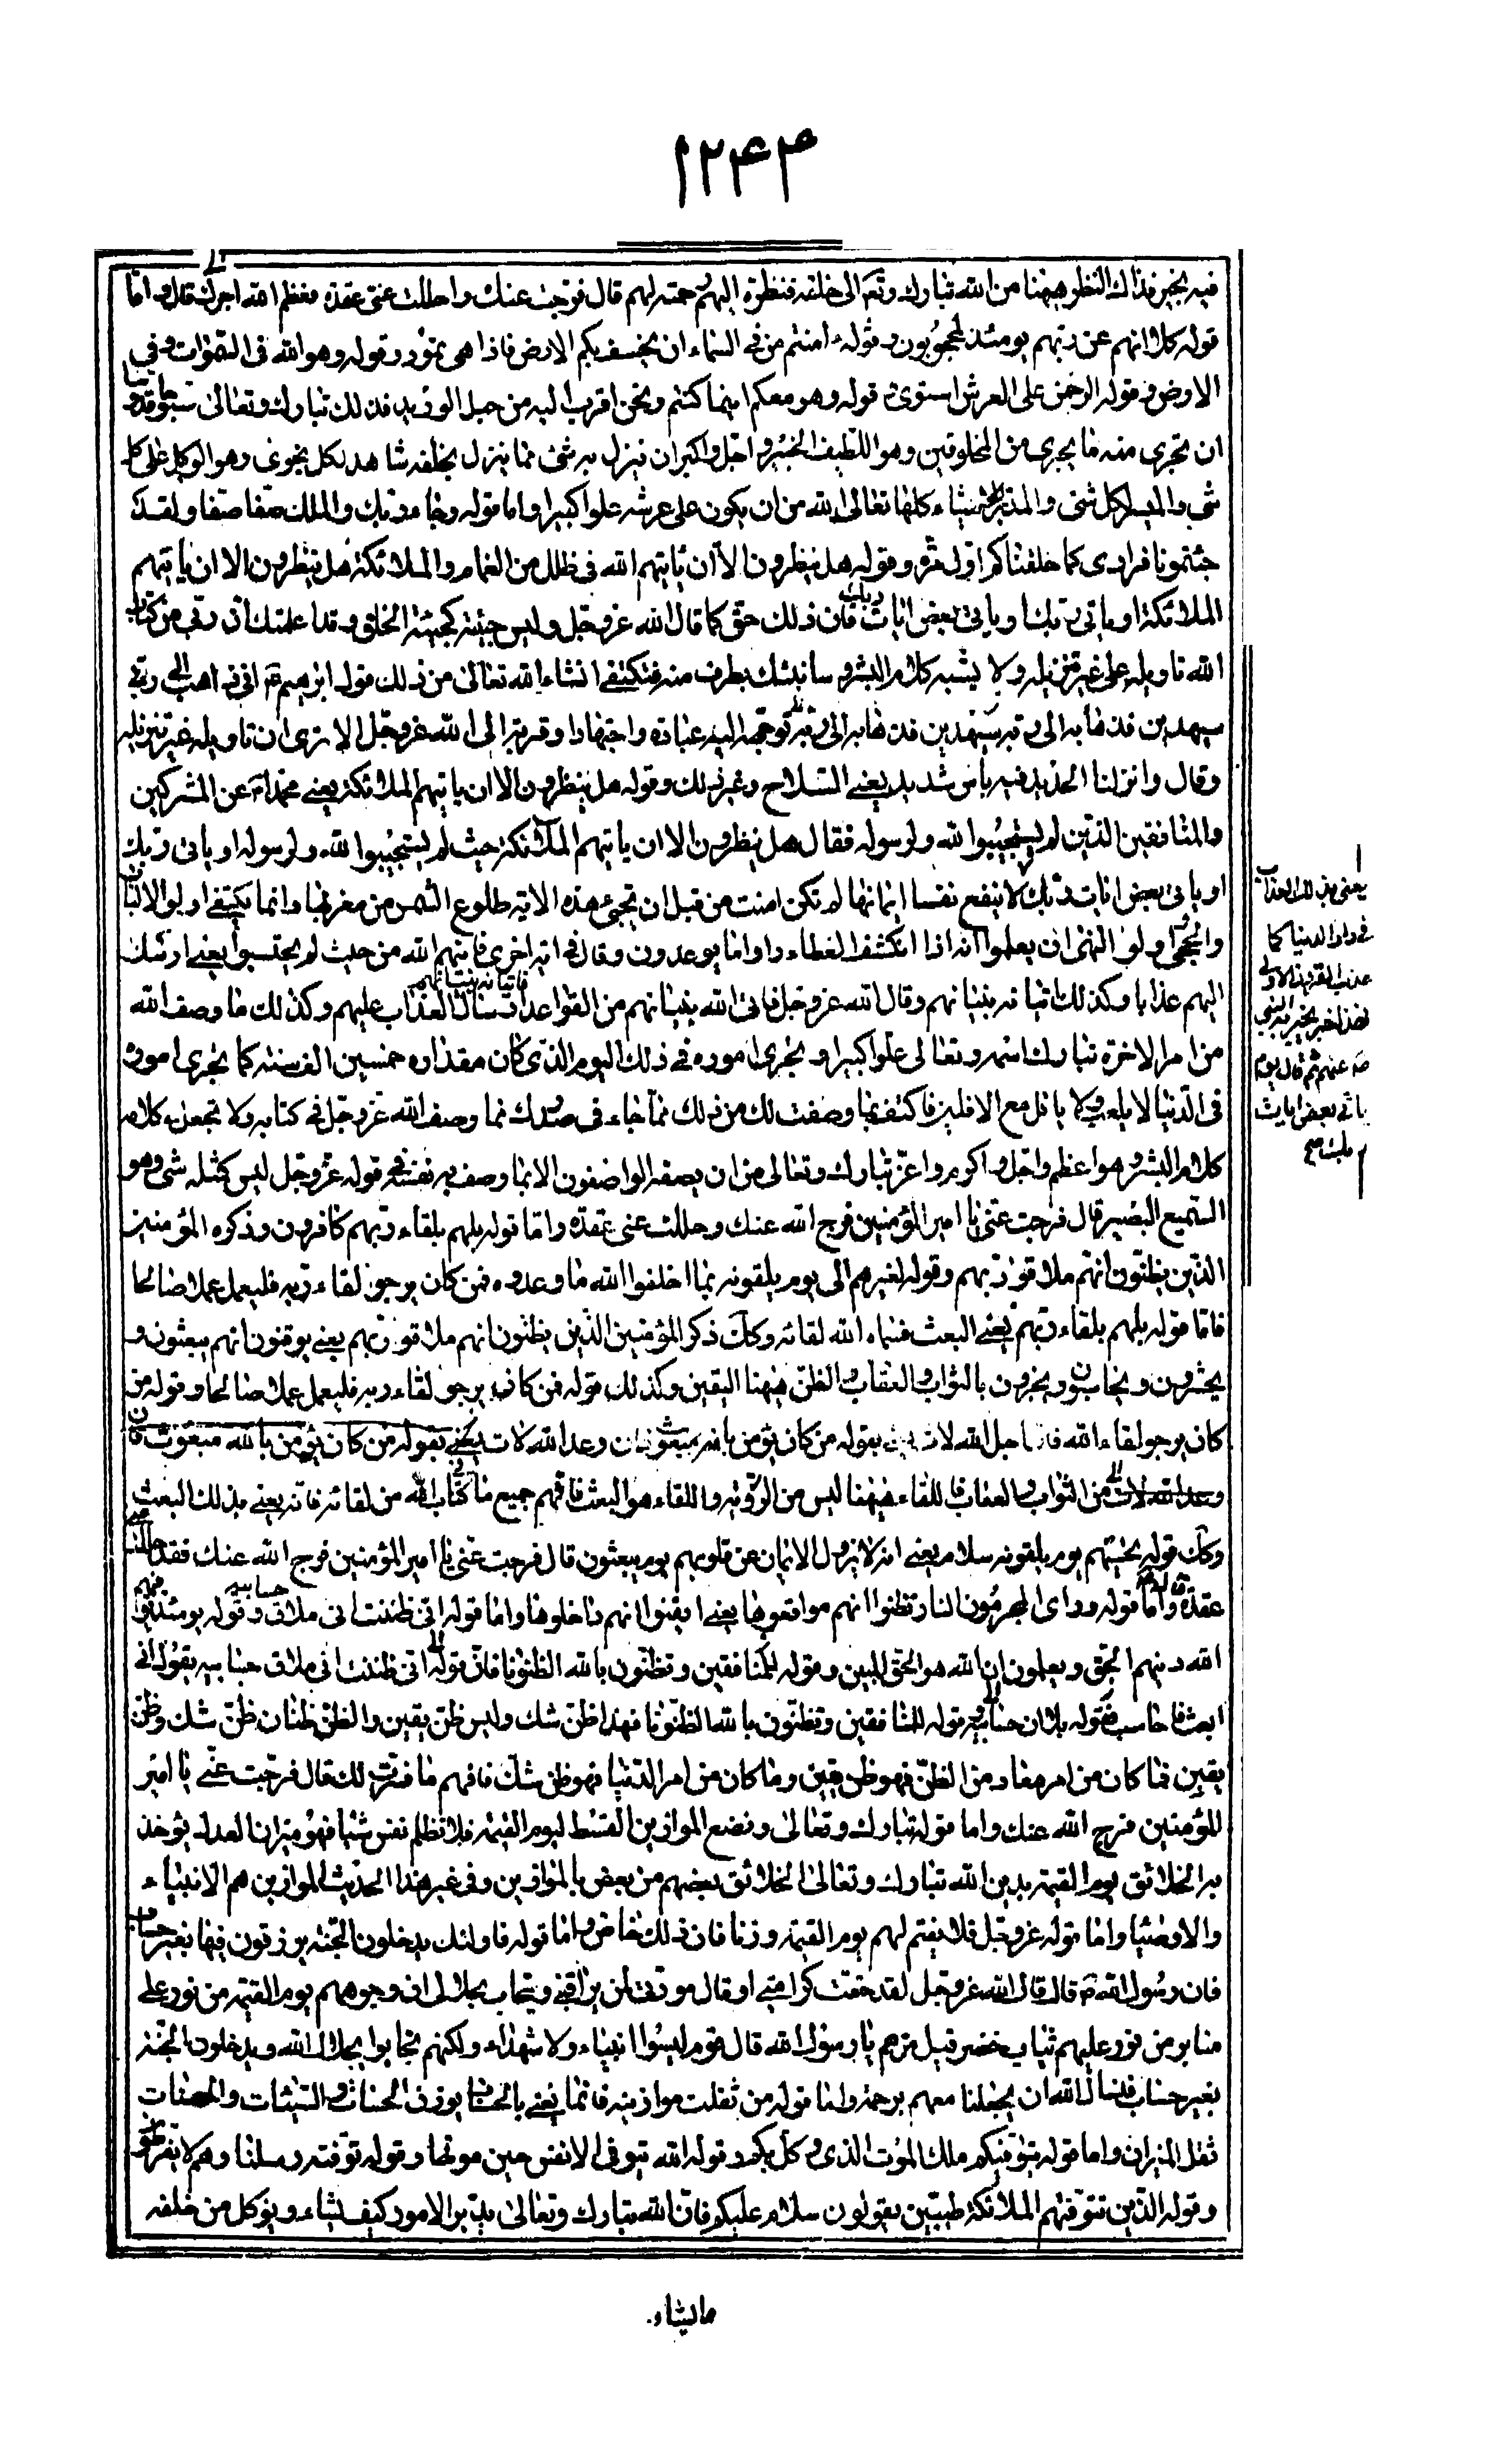 ۱۲۴۴
فيه بخير فذلك النظر هيهنا من الله تبارك وتعالى الى خلقه فنظره اليهم رحمته لهم قال فرجت عنك وحللت عنى عقدة فعظم الله اجرك قال واما
قوله كلا انهم عن ربهم يومئذ لمحجوبون وقوله ءامنتم من فى السماء ان يخسف بكم الارض فاذا هى تمور وقوله وهو الله فى السموات وفى
الارض وقوله الرحمن على العرش استوى وقوله وهو معكم اينما كنتم ونحن اقرب اليه من حبل الوريد فذلك تبارك وتعالى سبوحا قدوسا
ان تجرى منه ما يجرى من المخلوقين وهو اللطيف الخبير واجل واكبر ان ينزل به شئ مما ينزل بخلقه شاهد لكل نجوى وهو الوكيل على كل
شئ والميسر لكل شئ والمدبر للاشياء كلها تعالى الله من ان يكون على عرشه علوا كبيرا واما قوله وجاء ربك والملك صفا صفا ولقد
جئتمونا فرادى كما خلقناكم اول مرة وقوله هل ينظرون الا ان ياتيهم الله فى ظلل من الغمام والملائكة هل ينظرون الا ان ياتيهم
الملائكة او ياتى ربك او ياتى بعض ايات ربك فان ذلك حق كما قال الله عز وجل وليس جيئته كجيئة الخلق وقد اعلمتك ان رب من كتاب
الله تاويله على غير تنزيله ولا يشبه كلام البشر وسانبئك بطرف منه فتكتفى انشاء الله تعالى من ذلك قول ابرهيم انى ذاهب الى ربى
سيهدين فذهابه الى ربه سيهدين فذهابه الى ربه توجهه اليه عبادة واجتهادا وقربة الى الله عز وجل الا ترى ان تاويله غير تنزيله
وقال وانزلنا الحديد فيه باس شديد يعنى السلاح وغير ذلك وقوله هل ينظرون الا ان ياتيهم الملائكة يعنى محمدا عن المشركين
والمنافقين الذين لم يستجيبوا لله ولرسوله فقال هل ينظرون الا ان ياتيهم الملائكة حيث لم يستجيبوا لله ولرسوله او ياتى ربك
او ياتى بعض ايات ربك لا ينفع نفسا ايمانها لم تكن امنت من قبل ان تجئ هذه الاية طلوع الشمس من مغربها وانما يكتفى اولوا الالباب
والحجى واولوا النهى ان يعلموا انه اذا انكشف الغطاء راوا ما يوعدون وقال فى اية اخرى فاتيهم الله من حيث لم يحتسبوا يعنى ارسل
اليهم عذابا وكذلك اتيانه بنيانهم وقال الله عز وجل فاتى الله بنيانهم من القواعد فاتيانه بنيانهم ارسال العذاب عليهم وكذلك ما وصف الله
من امر الاخرة تبارك اسمه وتعالى علوا كبيرا وتجرى اموره فى ذلك اليوم الذى كان مقداره خمسين الف سنة كما تجرى اموره
فى الدنيا لا يلعب ولا يافل مع الافلين فاكتف بما وصفت لك من ذلك مما جاء فى صدرك مما وصف الله عز وجل فى كتابه ولا تجعل كلامه
كلام البشر وهو اعظم واجل واكرم واعز تبارك وتعالى من ان يصفه الواصفون الا بما وصف به نفسه فى قوله عز وجل ليس كمثله شئ وهو
السميع البصير قال فرجت عنى يا امير المؤمنين فرج الله عنك وحللت عنى عقدة واما قوله بل هم بلقاء ربهم كافرون وذكره المؤمنين
الذين يظنون انهم ملاقوا ربهم وقوله لغيرهم الى يوم يلقونه بما اخلفوا الله ما وعدوه فمن كان يرجو لقاء ربه فليعمل عملا صالحا
فاما قوله بل هم بلقاء ربهم يعنى البعث فسماه الله لقائه وكذلك ذكر المؤمنين الذين يظنون انهم ملاقوا ربهم يعنى يوقنون انهم يبعثون و
يحشرون ويحاسبون ويجزون بالثواب والعقاب والظن هيهنا اليقين وكذلك قوله فمن كان يرجو لقاء ربه فليعمل عملا صالحا وقوله من
كان يرجو لقاء الله فان اجل الله لات يعنى بقوله من كان يؤمن بانه مبعوث فان وعد الله لات يعنى بقوله من كان يؤمن بالله مبعوث فان
وعد الله لات من الثواب والعقاب فاللقاء هيهنا ليس من الرؤية واللقاء هو البعث فافهم جميع ما فى كتاب الله من لقائه فانه يعنى بذلك البعث
وكذلك قوله تحيتهم يوم يلقونه سلام يعنى انه لا يزول الايمان عن قلوبهم يوم يبعثون قال فرجت عنى يا امير المؤمنين فرج الله عنك فقد حللت
عقدة واما قوله وراى المجرمون النار فظنوا انهم مواقعوها يعنى ايقنوا انهم داخلوها واما قوله انى ظننت انى ملاق حسابيه وقوله يومئذ يوفيهم
الله دينهم الحق ويعلمون ان الله هو الحق المبين وقوله للمنافقين وتظنون بالله الظنونا فان قوله انى ظننت انى ملاق حسابيه يقول انى
ابعث فاحاسب وقوله ملاق حسابيه وقوله للمنافقين وتظنون بالله الظنونا فهذا ظن شك وليس ظن يقين والظن ظنان ظن شك وظن
يقين فما كان من امر معاد من الظن فهو ظن يقين وما كان من امر الدنيا فهو ظن شك فافهم ما فسرت لك قال فرجت عنى يا امير
المؤمنين فرج الله عنك واما قوله تبارك وتعالى ونضع الموازين القسط ليوم القيمة فلا تظلم نفس شيئا فهو ميزان العدل يؤخذ
به الخلائق يوم القيمة يدين الله تبارك وتعالى الخلائق بعضهم من بعض بالموازين وفى غير هذا الحديث الموازين هم الانبياء
والاوصياء واما قوله عز وجل فلا نقيم لهم يوم القيمة وزنا فان ذلك خاص واما قوله فاولئك يدخلون الجنة يرزقون فيها بغير حساب
فان رسول الله ص قال قال الله عز وجل لقد حقت كرامتى او قال مودتى لمن يراقبنى ويتحاب بجلالى ان وجوههم يوم القيمة من نور على
منابر من نور عليهم ثياب خضر قيل من هم يا رسول الله قال قوم ليسوا انبياء ولا شهداء ولكنهم تحابوا بجلال الله ويدخلون الجنة
بغير حساب فنسال الله ان يجعلنا معهم برحمته واما قوله من ثقلت موازينه فانما يعنى بالحساب يوزن الحسنات والسيئات والحسنات
ثقل الميزان واما قوله يتوفيكم ملك الموت الذى وكل بكم وقوله الله يتوفى الانفس حين موتها وقوله توفته رسلنا وهم لا يفرطون
وقوله الذين تتوفيهم الملائكة طيبين يقولون سلام عليكم فان الله تبارك وتعالى يدبر الامور كيف يشاء ويوكل من خلقه
من يشاء
يعنى بذلك العذاب
فى دار الدنيا كما
عذب القرون الاولى
فهذا خبر يخبر به النبى
ص عنهم ثم قال يوم
ياتى بعض ايات
ربك صح